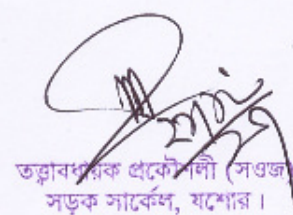 তত্ত্বাবধায়ক প্রকৌশলী (সওজ)
সড়ক সার্কেল, যশোর।